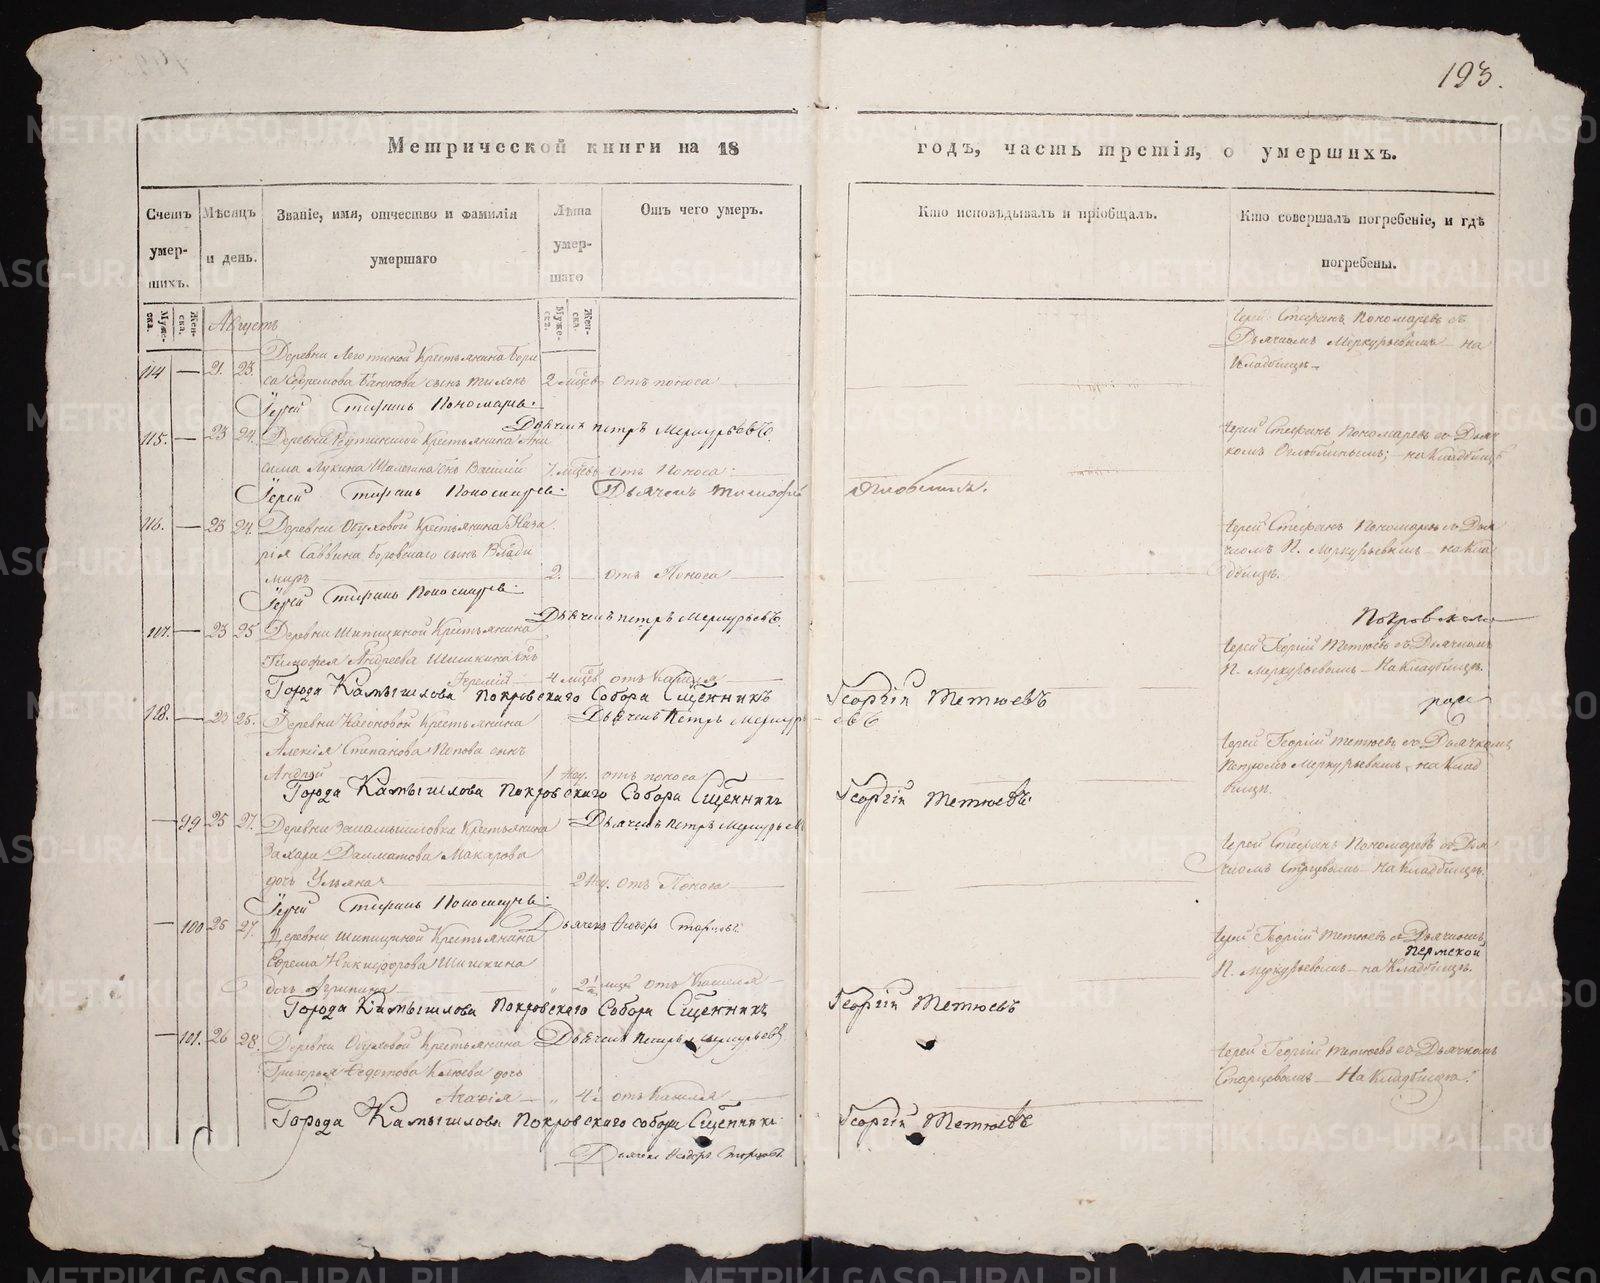 193.
Метрической книги на 18
годъ, часть третія, о умершихъ.
Счетъ умер-шихъ.
Мѣсяцъ и день.
Званіе, имя, отчество и фамилія умершаго
Лѣта умер-шаго
Отъ чего умеръ.
Кто исповѣдывалъ и пріобщалъ.
Кто совершалъ погребеніе, и гдѣ погребены.
Муже-ска.
Жен-ска.
Муже-ска.
Жен-ска.
Августъ
Іерей Стефанъ Пономаревъ съ
Дьячкомъ Меркурьевымъ на
Кладбищѣ
Деревни Крестьянина Бори
114 — 21. 23. са сынъ 2 мѣсяц. отъ поноса
Іерей Стефанъ Пономаревъ
Дьячекъ Петръ Меркурьевъ.
115. — 23 24. Деревни Крестьянина Ани
сима Лукина сынъ Василій 7 мѣсяц. отъ Поноса
Іерей Стефанъ Пономаревъ Дьячекъ Тимофей
Оглоблинъ.
Іерей Стефанъ Пономаревъ съ Дьяч
комъ Оглоблинымъ; на Кладбищѣ
116. — 23 24. Деревни Обуховой Крестьянина Наза
рія Саввина Боровскаго сынъ Влади
миръ 2. отъ Поноса
Іерей Стефанъ Пономаревъ
Дьячекъ Петръ Меркурьевъ.
Іерей Стефанъ Пономаревъ съ Дья
чкомъ П. Меркурьевымъ на Кла
дбищѣ.
117. — 23 25 Деревни Шипициной Крестьянина
Тимофея Андреева Шишкина сынъ
Іеремій 4 мѣсяц. отъ Кашля
Города Камышлова Покровскаго Собора Священникъ Георгій Тетюевъ
Дьячекъ Петръ Меркурьевъ
Іерей Георгій Тетюевъ съ Дьячкомъ
П. Меркурьевымъ На Кладбищѣ.
118. — 23 25. Деревни Крестьянина
Алексія Степанова Попова сынъ
Андрей 1 нед. отъ поноса
Города Камышлова Покровскаго Собора Священникъ Георгій Тетюевъ
Дьячекъ Петръ Меркурьевъ
Іерей Георгій Тетюевъ съ Дьячкомъ
Петромъ Меркурьевымъ, на Клад
бищѣ.
— 99 25 27. Деревни Закамышловка Крестьянина
Захара Далматова Макарова
дочь Ульяна 2 нед. отъ Поноса
Іерей Стефанъ Пономаревъ
Дьячекъ Ѳедоръ Старцевъ
Іерей Стефанъ Пономаревъ съ Дья
чкомъ Старцевымъ На Кладбищѣ.
— 100 25 27. Деревни Шипициной Крестьянина
Ефрема Никифорова Шишкина
дочь Агрипина „ 2½ мѣсяц. отъ Кашля
Города Камышлова Покровскаго Собора Священникъ Георгій Тетюевъ
Дьячекъ Петръ Меркурьевъ
Іерей Георгій Тетюевъ съ Дьячкомъ
П. Меркурьевымъ на Кладбищѣ.
— 101. 26 28. Деревни Обуховой Крестьянина
Григорья Федотова Клюева дочь
Агафія „ 4. отъ Кашля
Города Камышлова Покровскаго собора Священникъ Георгій Тетюевъ
Дьячекъ Ѳедоръ Старцовъ
Іерей Георгій Тетюевъ съ Дьячкомъ
Старцевымъ На Кладбищѣ.
METRIKI.GASO-URAL.RU